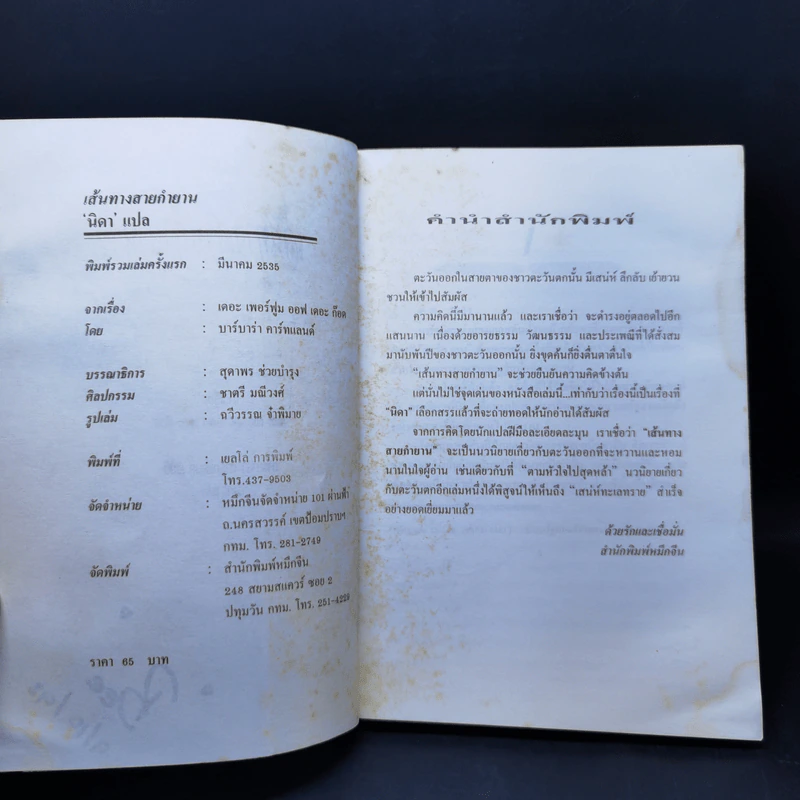 เส้นทางสายกำยาน
'นิดา' แปล
พิมพ์รวมเล่มครั้งแรก : มีนาคม 2535
จากเรื่อง : เดอะ เพอร์ฟูม ออฟ เดอะ ก๊อด
โดย : บาร์บาร่า คาร์ทแลนด์
บรรณาธิการ : สุดาพร ช่วยบำรุง
ศิลปกรรม : ชาตรี มณีวงศ์
รูปเล่ม : ถวีวรรณ จำพิมาย
พิมพ์ที่ : เยลโล่ การพิมพ์
โทร.437-9503
จัดจำหน่าย : หมึกจีนจัดจำหน่าย 101 ผ่านฟ้า
ถ.นครสวรรค์ เขตป้อมปราบฯ
กทม. โทร. 281-2749
จัดพิมพ์ : สำนักพิมพ์หมึกจีน
248 สยามสแควร์ ซอย 2
ปทุมวัน กทม. โทร. 251-4229
ราคา 65 บาท
คำนำสำนักพิมพ์
ตะวันออกในสายตาของชาวตะวันตกนั้น มีเสน่ห์ ลึกลับ เย้ายวน
ชวนให้เข้าไปสัมผัส
ความคิดนี้มีมานานแล้ว และเราเชื่อว่า จะดำรงอยู่ตลอดไปอีก
แสนนาน เนื่องด้วยอารยธรรม วัฒนธรรม และประเพณีที่ได้สั่งสม
มานับพันปีของชาวตะวันออกนั้น ยิ่งขุดค้นก็ยิ่งตื่นตาตื่นใจ
"เส้นทางสายกำยาน" จะช่วยยืนยันความคิดข้างต้น
แต่นั่นไม่ใช่จุดเด่นของหนังสือเล่มนี้...เท่ากับว่าเรื่องนี้เป็นเรื่องที่
"นิดา" เลือกสรรแล้วที่จะถ่ายทอดให้นักอ่านได้สัมผัส
จากการคิดโดยนักแปลฝีมือละเอียดละมุน เราเชื่อว่า "เส้นทาง
สายกำยาน" จะเป็นนวนิยายเกี่ยวกับตะวันออกที่จะหวานและหอม
นานในใจผู้อ่าน เช่นเดียวกับที่ "ตามหัวใจไปสุดหล้า" นวนิยายเกี่ยว
กับตะวันตกอีกเล่มหนึ่งได้พิสูจน์ให้เห็นถึง "เสน่ห์ทะเลทราย" สำเร็จ
อย่างยอดเยี่ยมมาแล้ว
ด้วยรักและเชื่อมั่น
สำนักพิมพ์หมึกจีน